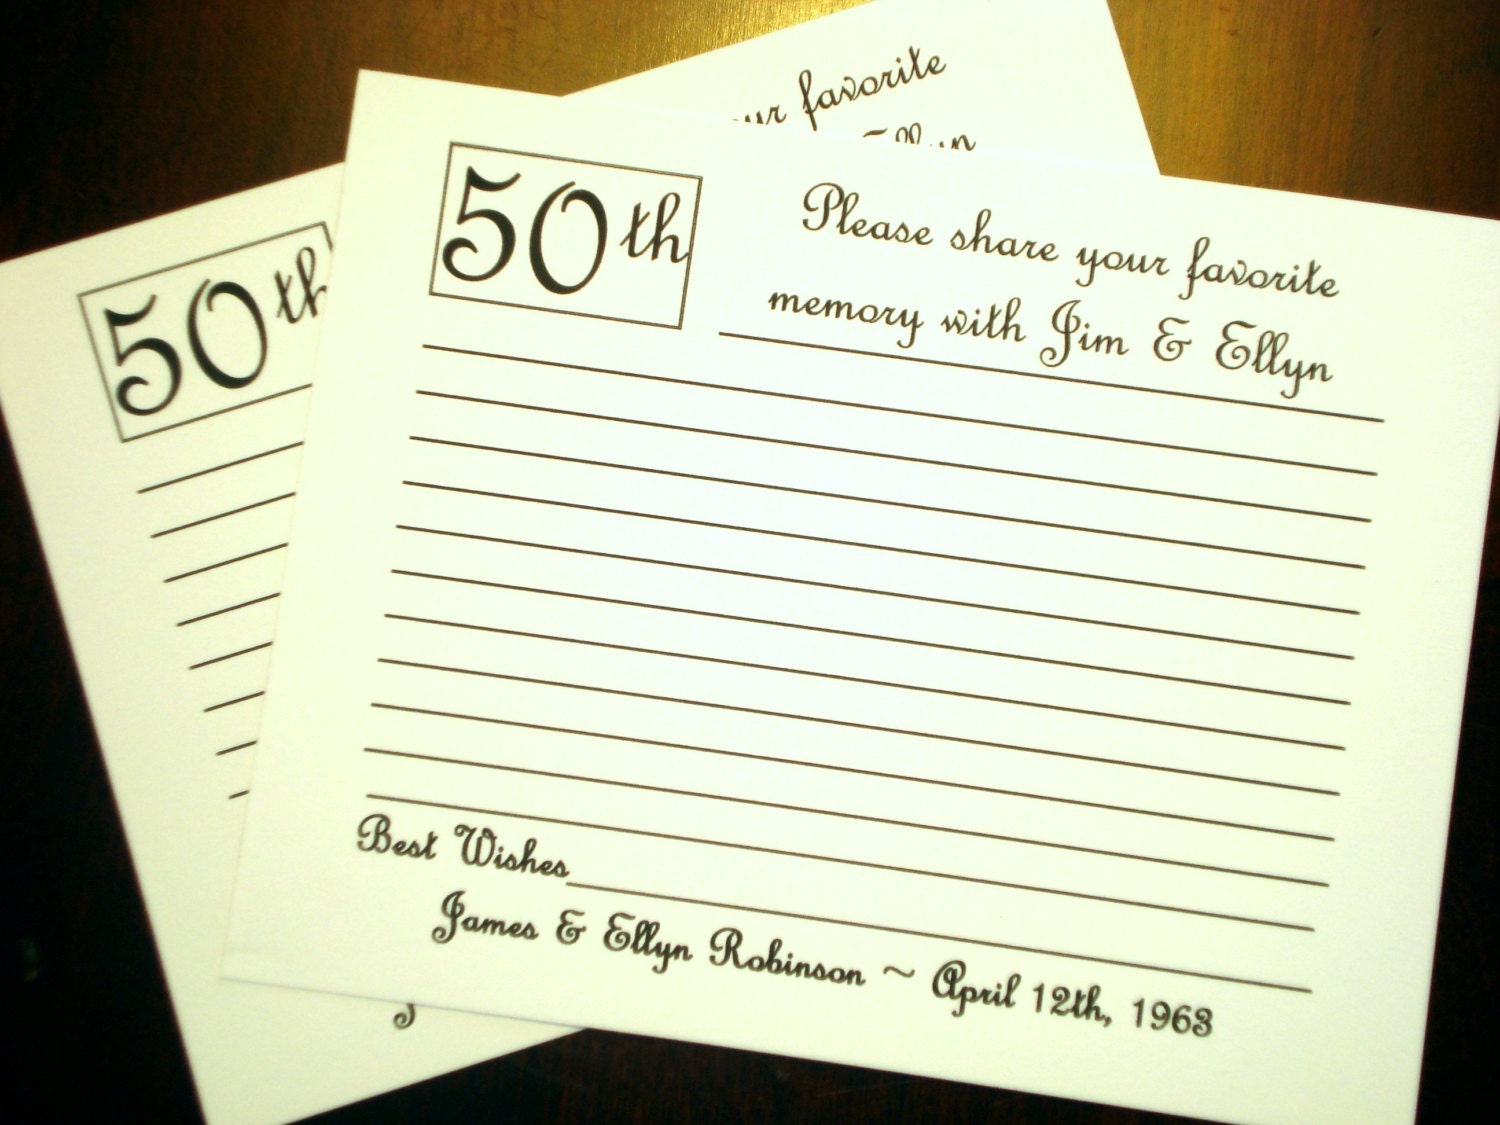 ur favorite
50th
Please share your favorite
memory with Jim & Ellyn
50th
Best Wishes
James & Ellyn Robinson ~ April 12th, 1963